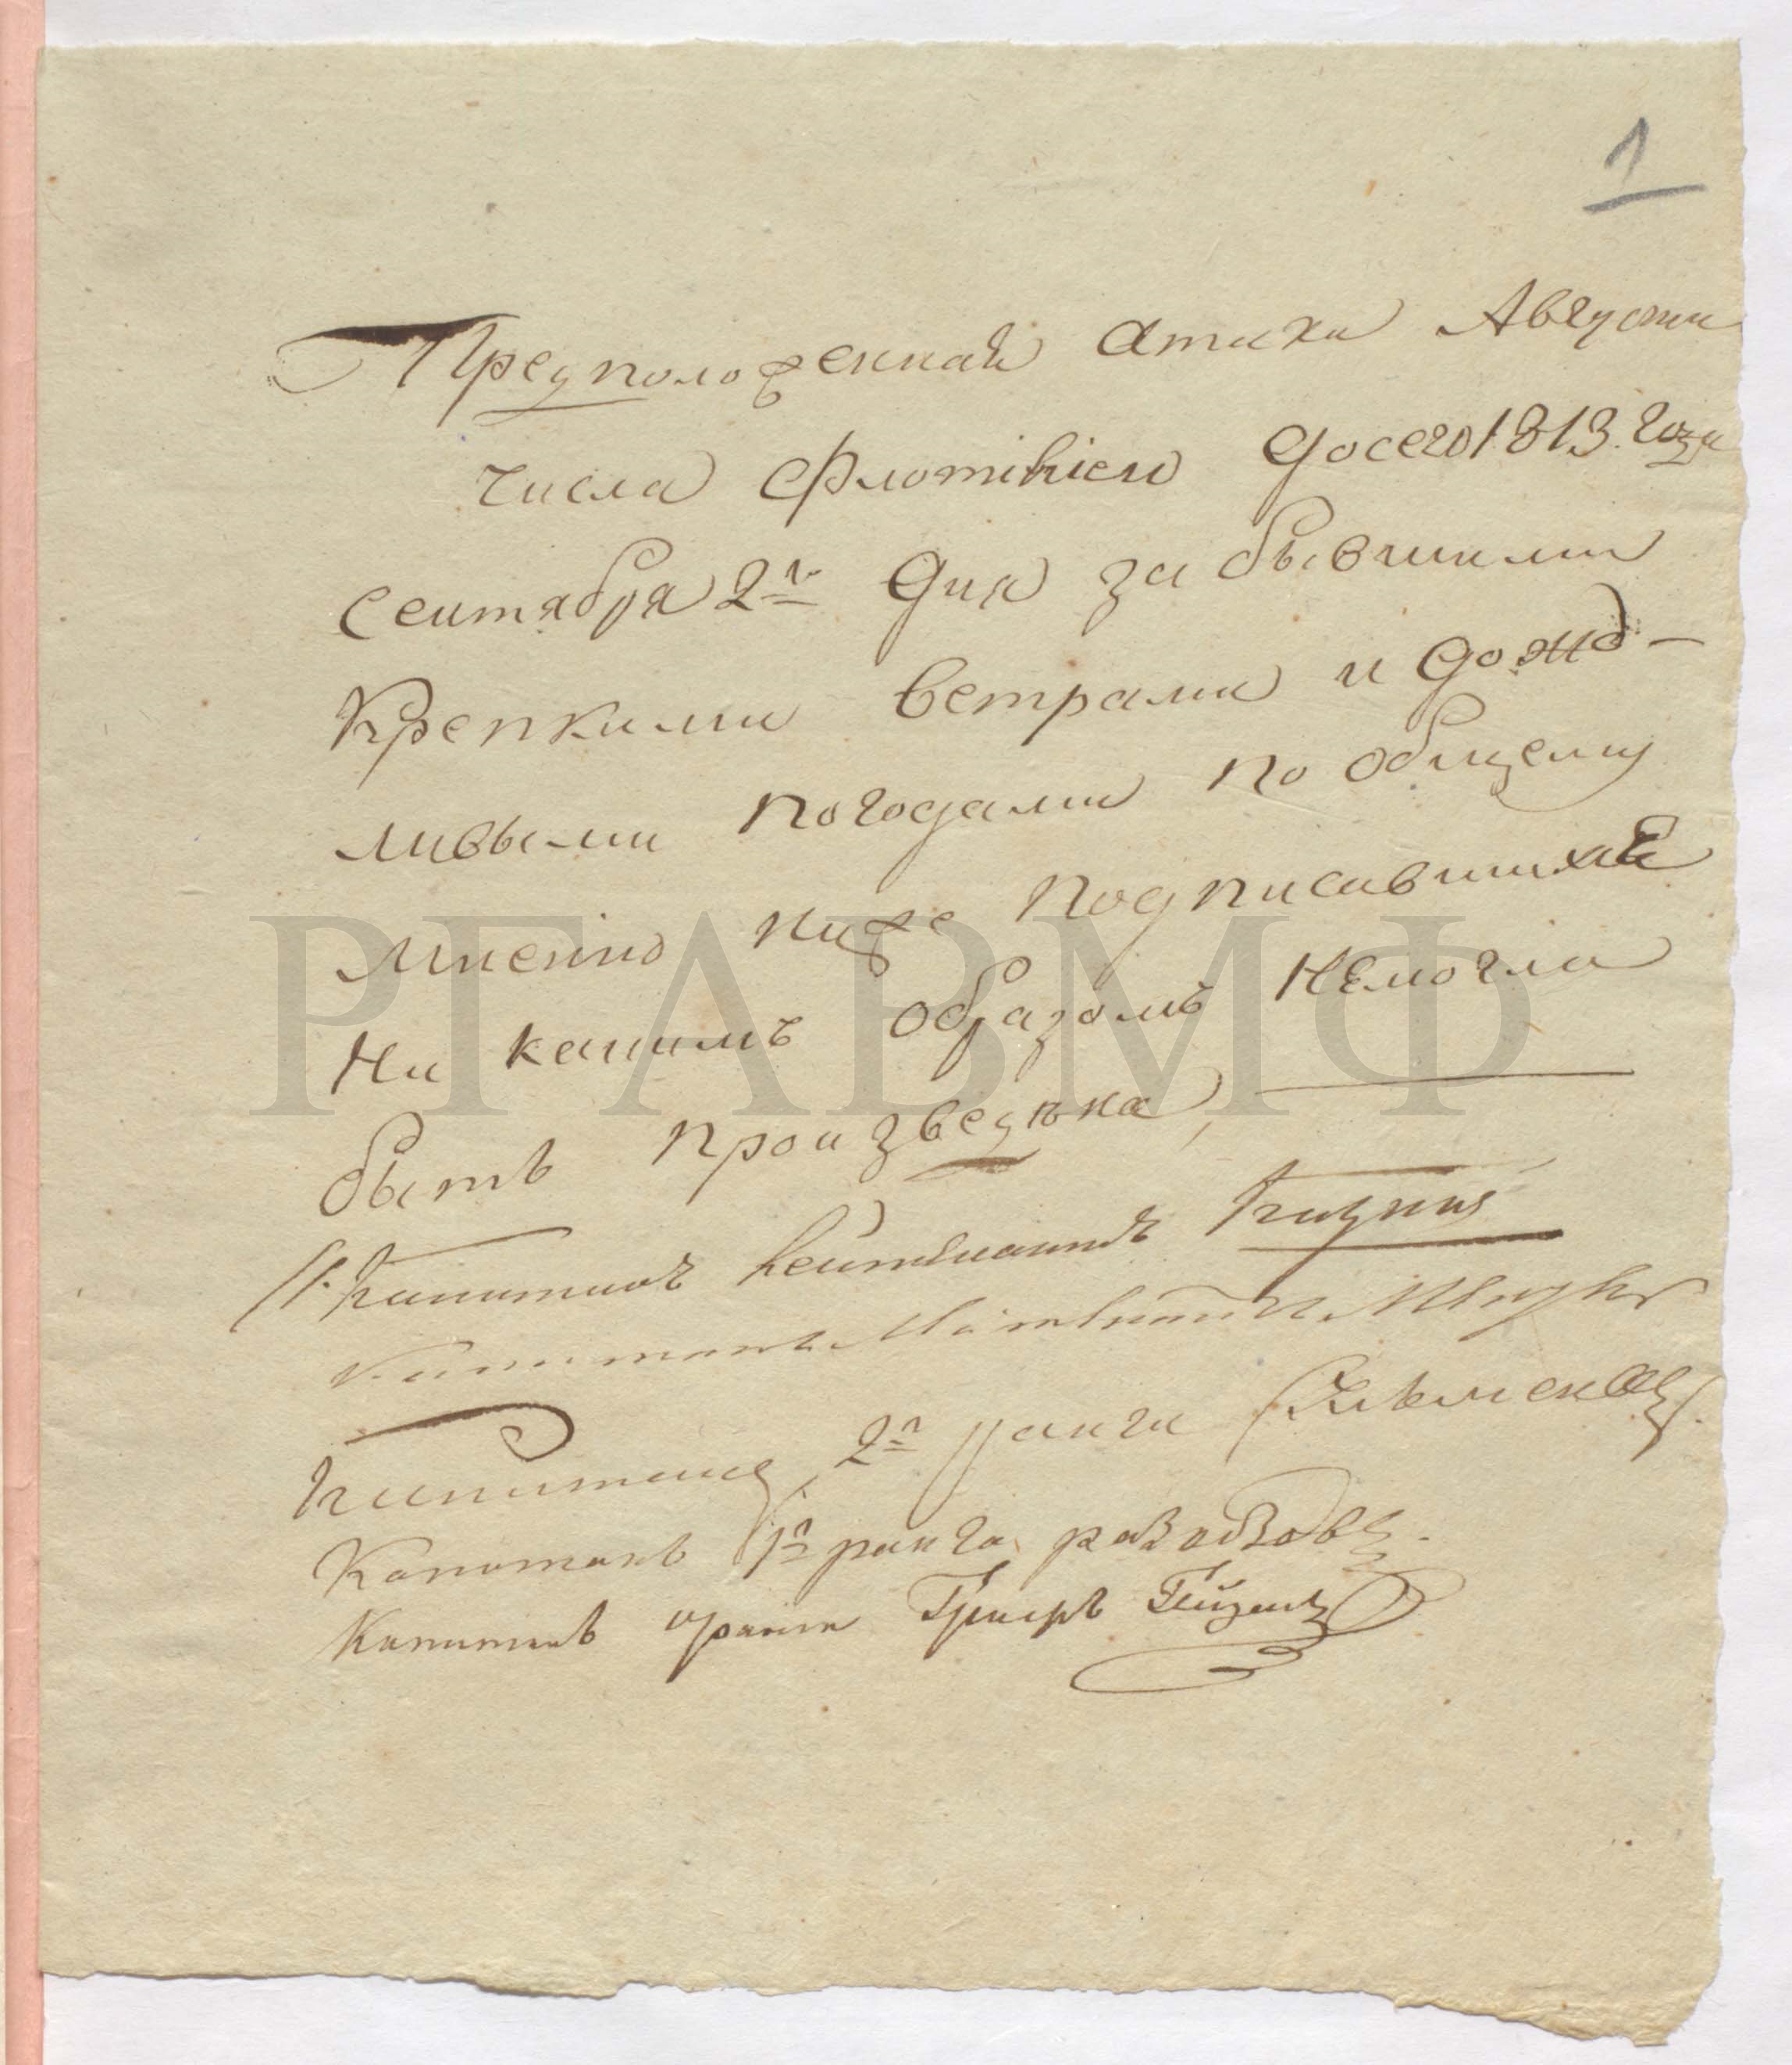 1
Предположенная атака Августа
числа Флотіліею до сего 1813. года
Сентября 2го дня за бывшими
Крепкими ветрами и дожд-
ливыми погодами по общему
мнению ниже подписавшихся
Ни какимъ образомъ не могла
быть произведена
Капитанъ Лейтенантъ
Капитанъ Лейтенантъ
Капитанъ 2го ранга
Капитанъ 1го ранга развозовъ.
Капитанъ ранга Графъ Гейденъ
РГАВМФ